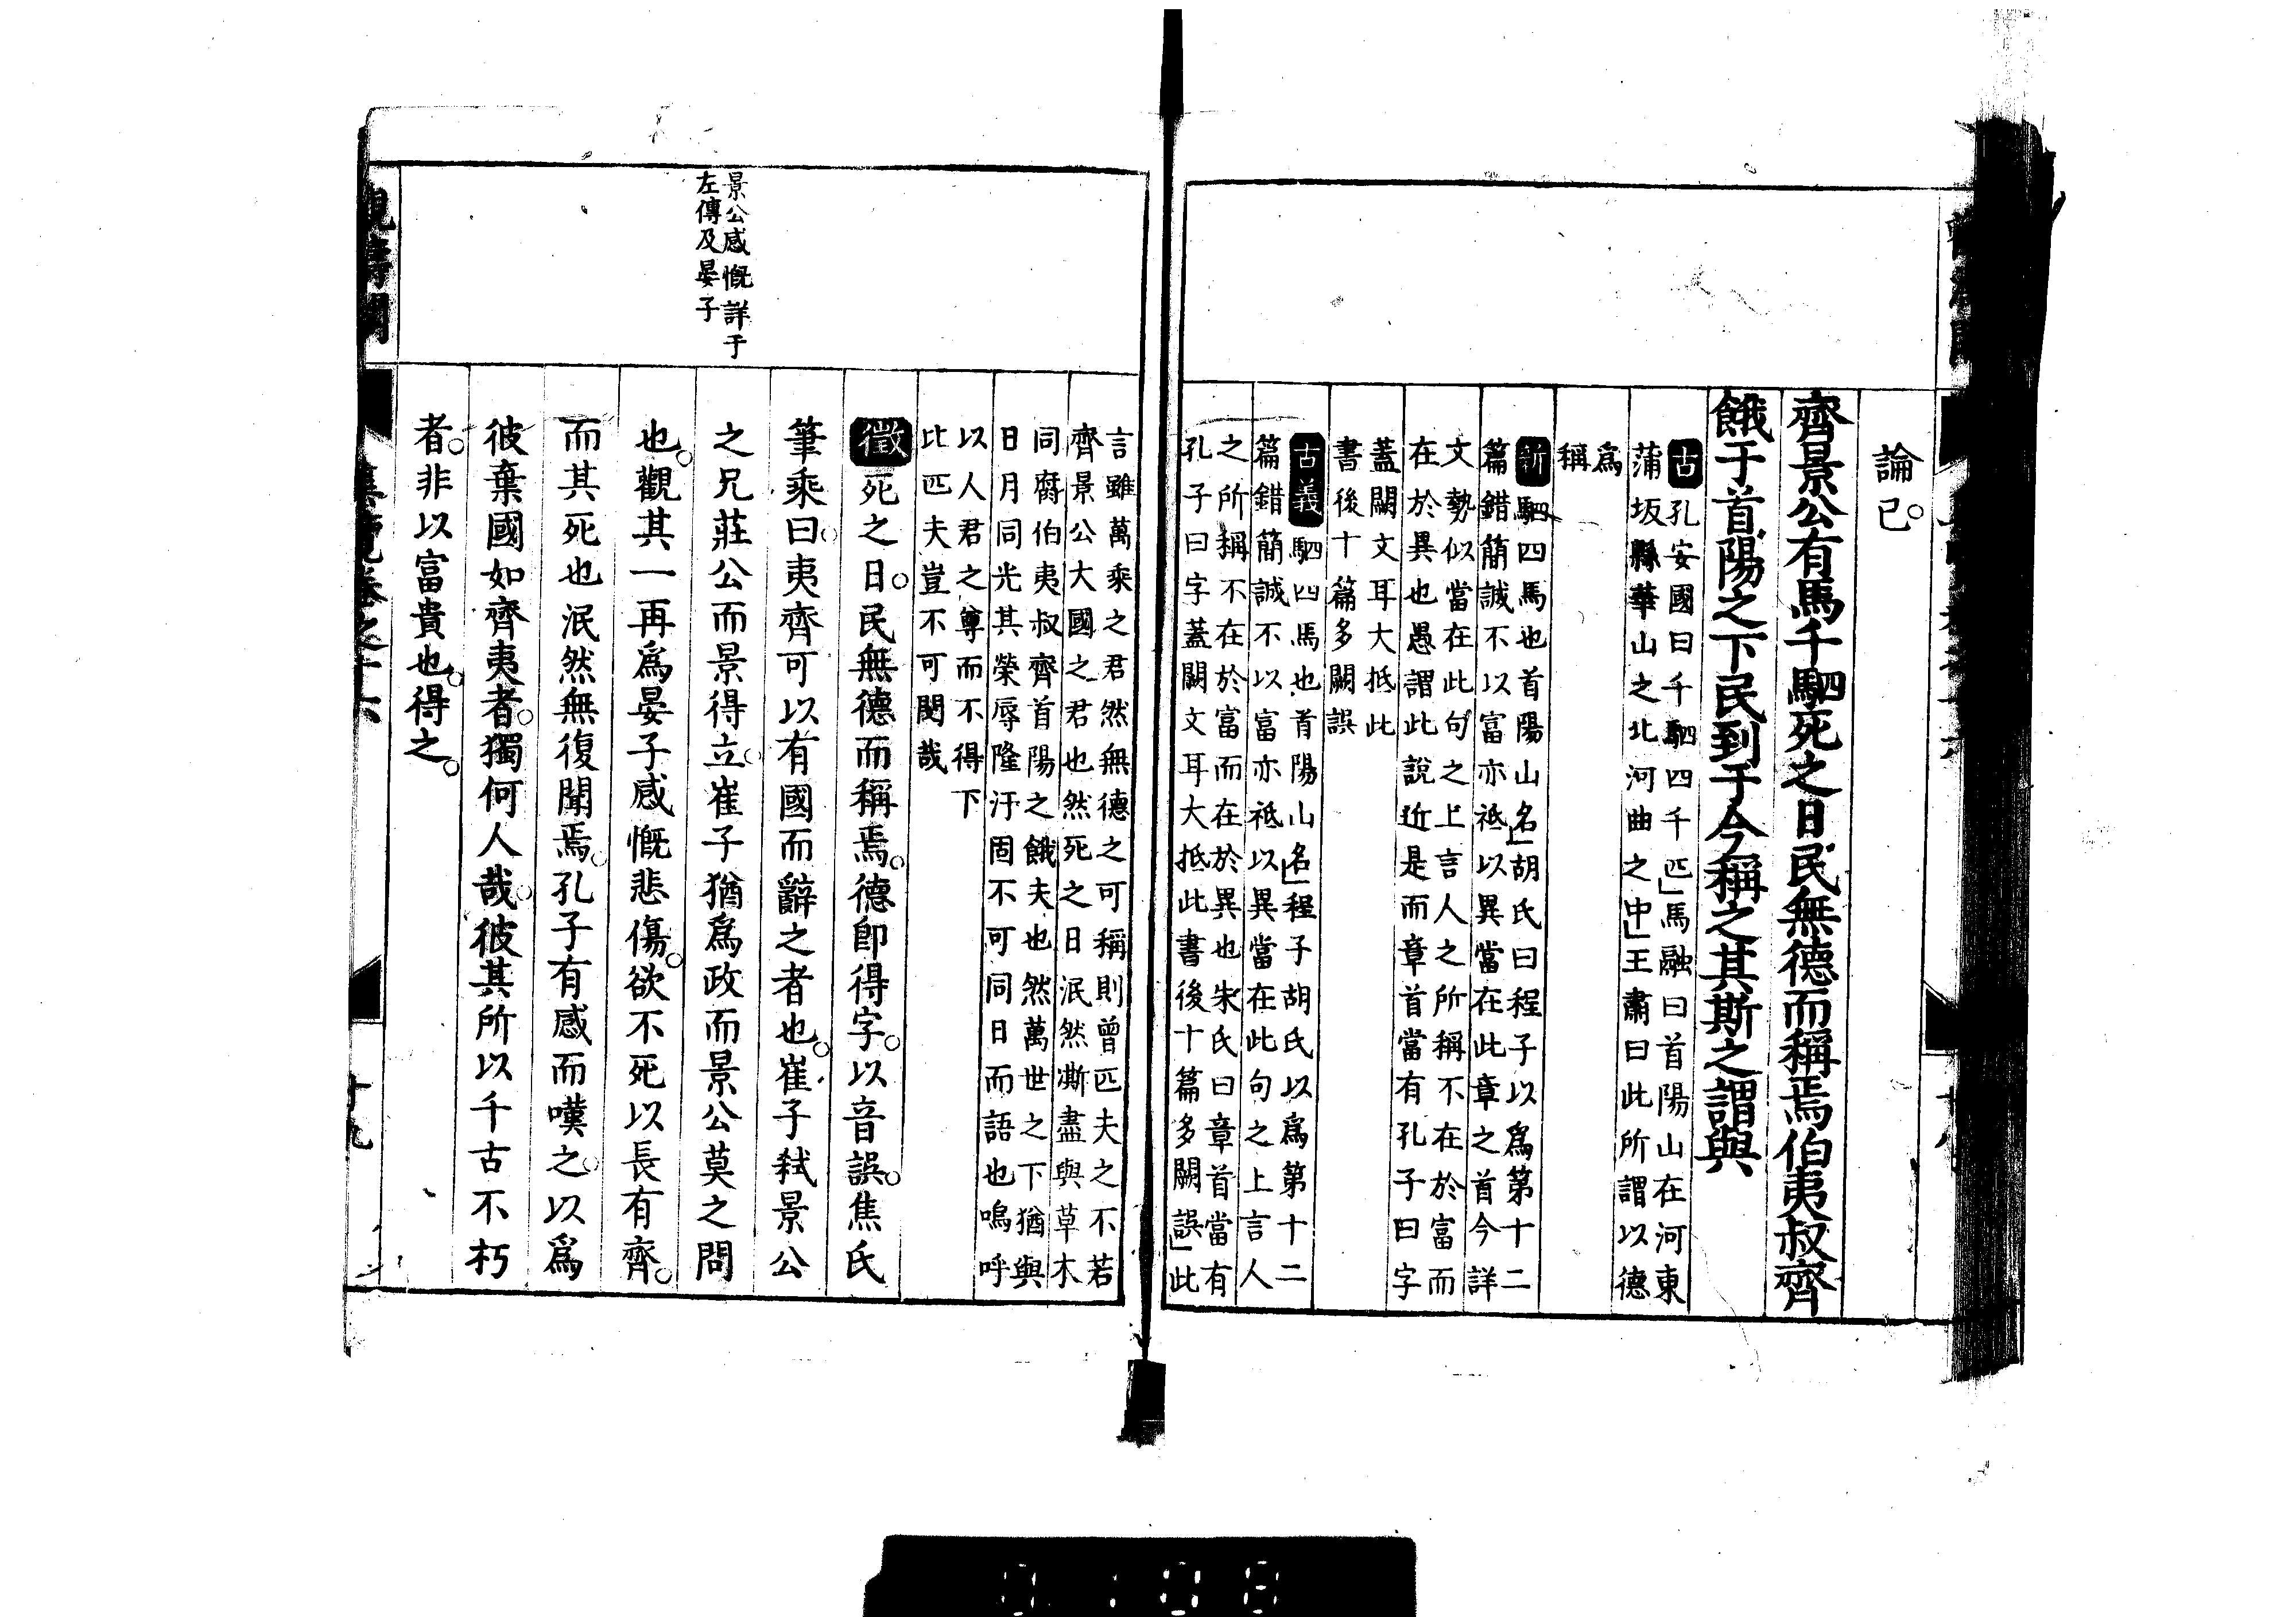 論已。
齊景公有馬千駟死之日民無德而稱焉伯夷叔齊
餓于首陽之下民到于今稱之其斯之謂與
古孔安國曰千駟四千匹」馬融曰首陽山在河東
蒲坂縣華山之北河曲之中」王肅曰此所謂以德
爲
稱
新駟四馬也首陽山名」胡氏曰程子以爲第十二
篇錯簡誠不以富亦祗以異當在此章之首今詳
文勢似當在此句之上言人之所稱不在於富而
在於異也愚謂此說近是而章首當有孔子曰字
蓋闕文耳大抵此
書後十篇多闕誤
古義駟四馬也首陽山名」程子胡氏以爲第十二
篇錯簡誠不以富亦祗以異當在此句之上言人
之所稱不在於富而在於異也朱氏曰章首當有
孔子曰字蓋闕文耳大抵此書後十篇多闕誤」此
言雖萬乘之君然無德之可稱則曾匹夫之不若
齊景公大國之君也然死之日泯然澌盡與草木
同腐伯夷叔齊首陽之餓夫也然萬世之下猶與
日月同光其榮辱隆汙固不可同日而語也嗚呼
以人君之尊而不得下
比匹夫豈不可閔哉
徵死之日。民無德而稱焉。德卽得字。以音誤。焦氏
筆乘曰。夷齊可以有國而辭之者也。崔子弑景公
之兄莊公而景得立。崔子猶爲政而景公莫之問
也。觀其一再爲晏子感慨悲傷。欲不死以長有齊。
而其死也泯然無復聞焉。孔子有感而嘆之。以爲
彼棄國如齊夷者。獨何人哉。彼其所以千古不朽
者。非以富貴也。得之。
景公感慨詳于
左傳及晏子
十九